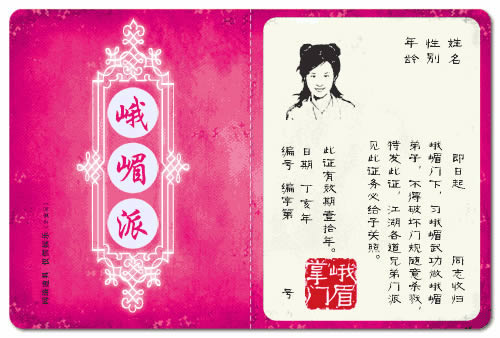 峨嵋派
网络道具 仅供娱乐
姓名
性别
年龄
即日起 同志收归
峨嵋门下，习峨嵋武功做峨嵋
弟子，不得破坏门规随意杀戮，
特发此证，江湖各道兄弟门派
见此证务必给予关照。
此证有效期壹拾年。
日期 丁亥年
编号 编字第 号
峨眉
掌门